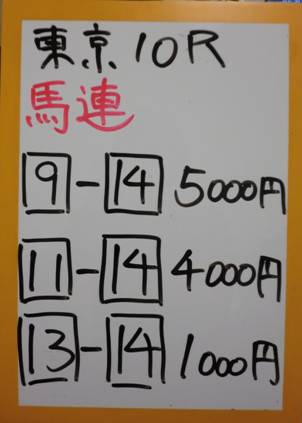 東京10R
馬連
9-14 5000円
11-14 4000円
13-14 1000円